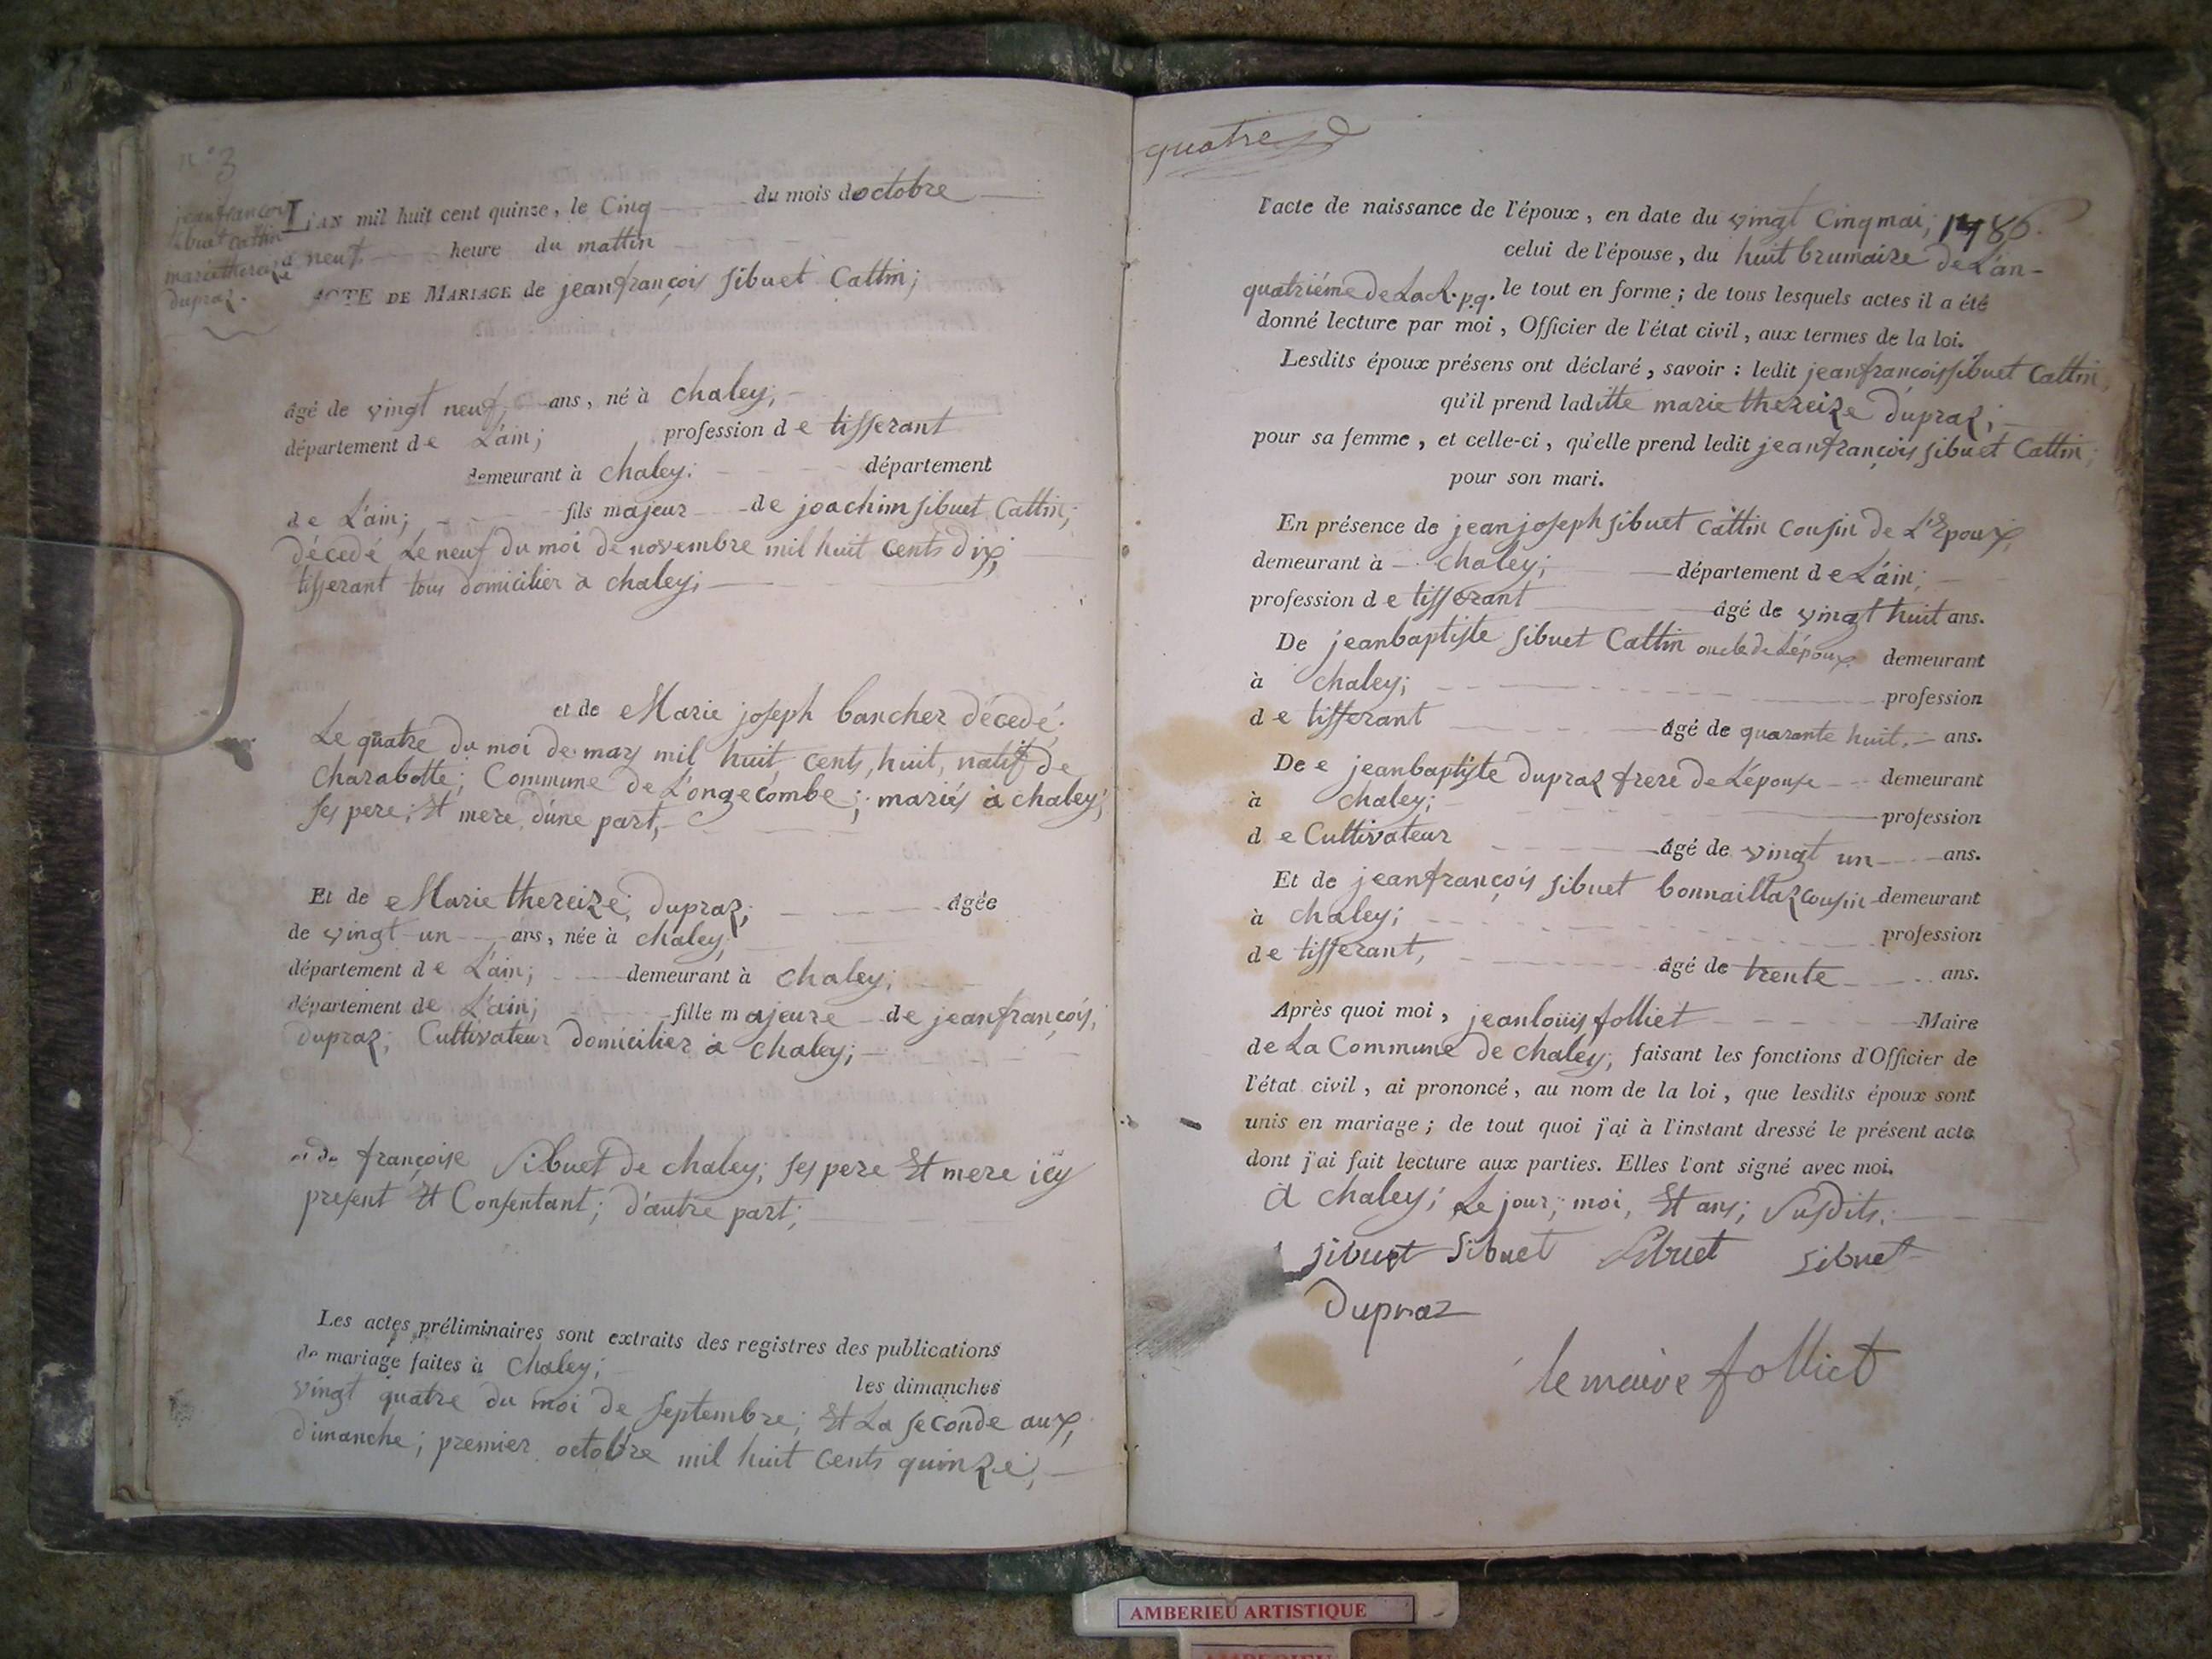 n° 3
jeanfrançois
sibuet cattin
marie thereize
dupraz.
L'AN mil huit cent quinze, le Cinq du mois d'octobre
a neuf heure du mattin
ACTE DE MARIAGE de jeanfrançois sibuet Cattin;
âgé de vingt neuf, ans, né à chaley;
département de L'ain; profession de tisserant
demeurant à chaley; département
de L'ain; fils majeur de joachim sibuet Cattin;
décedé Le neuf du moi de novembre mil huit cents dix;
tisserant tous domicilier a chaley;
et de Marie joseph bancher décedé;
Le quatre du moi de mars mil huit cents, huit, natif de
charabotte; Commune de Longecombe; mariés à chaley;
ses pere; Et mere, d'une part,
Et de Marie thereize, dupraz; âgée
de vingt un ans, née à chaley,
département de L'ain; demeurant à chaley;
département de L'ain; fille majeure de jeanfrançois,
dupraz; Cultivateur domicilier à chaley;
et de françoise Sibuet de chaley; ses pere Et mere icy
present Et Consentant; d'autre part;
Les actes préliminaires sont extraits des registres des publications
de mariage faites à Chaley;
les dimanches
vingt quatre du moi de septembre; Et La seconde aux,
dimanche; premier octobre mil huit cents quinze;
quatre
l'acte de naissance de l'époux, en date du vingt Cinq mai; 1786.
celui de l'épouse, du huit brumaire de L'an-
quatriéme de La R. p.q. le tout en forme; de tous lesquels actes il a été
donné lecture par moi, Officier de l'état civil, aux termes de la loi.
Lesdits époux présens ont déclaré, savoir : ledit jeanfrancois sibuet Cattin,
qu'il prend laditte marie thereize dupraz;
pour sa femme, et celle-ci, qu'elle prend ledit jeanfrançois sibuet Cattin;
pour son mari.
En présence de jeanjoseph sibuet Cattin Cousin de L'Epoux,
demeurant à chaley; département de L'ain;
profession de tisserant âgé de vingt huit ans.
De jeanbaptiste sibuet Cattin oncle de L'époux demeurant
à chaley; profession
de tisserant âgé de quarante huit. ans.
De e jeanbaptiste dupraz frere de L'épouse demeurant
à chaley; profession
de Cultivateur âgé de vingt un ans.
Et de jeanfrançois sibuet bonnaillaz cousin demeurant
à chaley; profession
de tisserant, âgé de trente ans.
Après quoi moi, jeanlouis folliet Maire
de La Commune de chaley, faisant les fonctions d'Officier de
l'état civil, ai prononcé, au nom de la loi, que lesdits époux sont
unis en mariage; de tout quoi j'ai à l'instant dressé le présent acte
dont j'ai fait lecture aux parties. Elles l'ont signé avec moi.
A chaley; Le jour; moi, Et ans; Susdits;
sibuet sibuet Sibuet sibuet
Dupraz
le maire folliet
AMBERIEU ARTISTIQUE
AMBERIEU